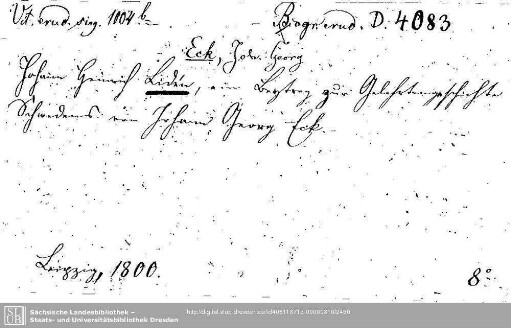 Vit. erud. sing. 1004 b
Biogr. erud. D. 4083
Eck, Joh. Georg
Johann Heinrich Lidén, ein Beytrag zur Gelehrtengeschichte
Schwedens von Johann Georg Eck.
Leipzig, 1800.
8°
Sächsische Landesbibliothek –
Staats- und Universitätsbibliothek Dresden